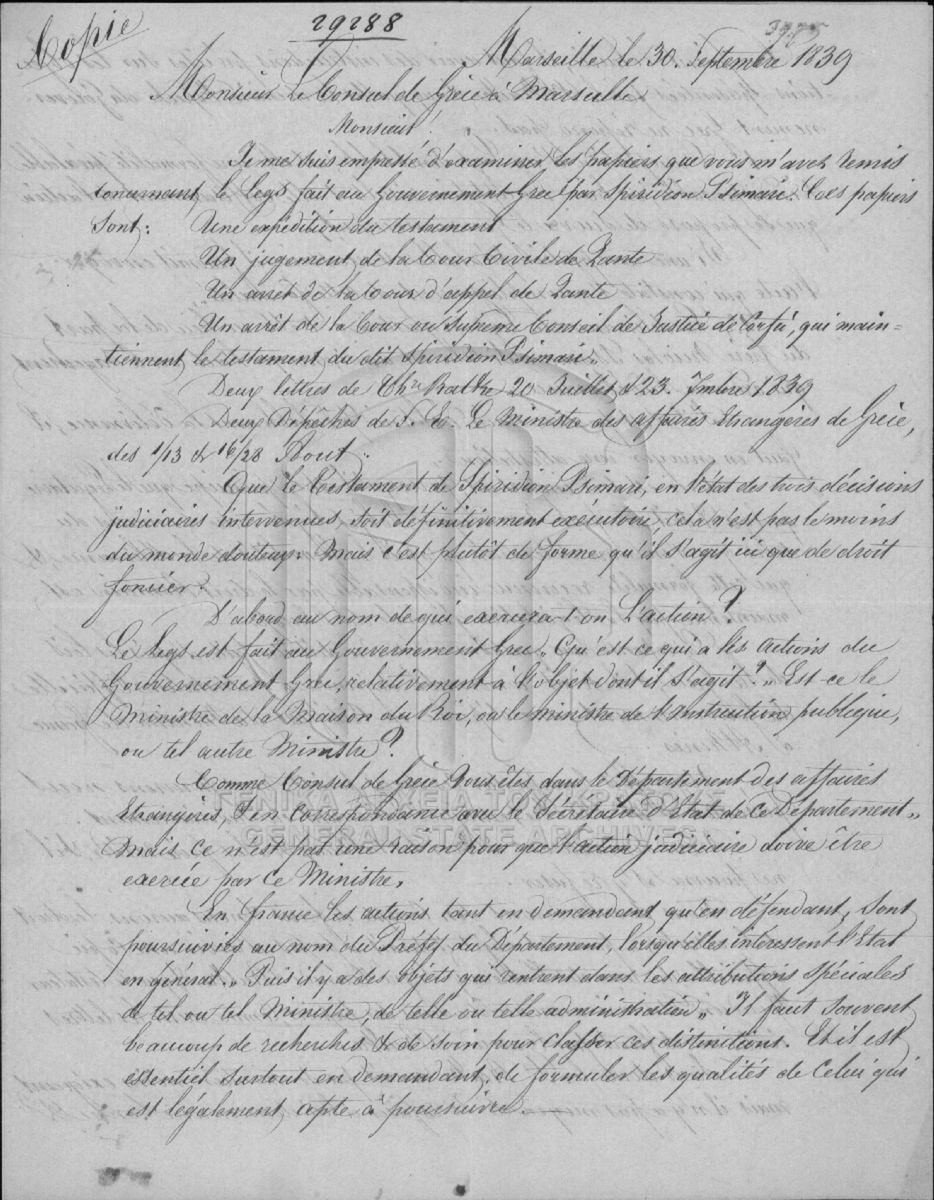 Copie
29288
Marseille le 30. Septembre 1839
Monsieur Le Consul de Grèce à Marseille
Monsieur!
Je me suis empressé d'examiner les papiers que vous m'avez remis
concernant le legs fait au Gouvernement Grec par Spiridion Psimari. Ces papiers
Sont: Une expédition du testament
Un jugement de la Cour Civile de Zante
Un arrêt de la Cour d'appel de Zante
Un arrêt de la Cour ou Suprême Conseil de Justice de Corfu, qui main=
tiennent le testament du dit Spiridion Psimari.
Deux lettres de 20 Juillet & 23. 7mbre 1839
Deux Dépêches de S. E. Le Ministre des affaires Etrangères de Grèce,
des 1/13 & 16/28 Aout.
Que le Testament de Spiridion Psimari, en l'état des trois décisions
judiciaires intervenues, soit définitivement exécutoire, cela n'est pas le moins
du monde douteux. Mais c'est plutôt de forme qu'il s'agit ici que de droit
foncier.
D'abord au nom de qui exercera-t-on L'action?
Le Legs est fait au Gouvernement Grec. Qu'est ce qui a les actions du
Gouvernement Grec, relativement à l'objet dont il s'agit? Est-ce le
Ministre de la Maison du Roi, ou le ministre de l'Instruction publique,
ou tel autre Ministre?
Comme Consul de Grèce Vous êtes dans le Département des affaires
Etrangères, & en correspondance avec le Secrétaire d'Etat de ce Département.
Mais ce n'est pas une raison pour que l'action judiciaire doive être
exercée par ce Ministre.
En france les actions tant en demandant qu'en défendant, sont
poursuivies au nom du Préfet du Département, lorsqu'elles intéressent l'Etat
en général. Puis il y a des objets qui rentrent dans les attributions spéciales
de tel ou tel Ministre, de telle ou telle administration. Il faut souvent
beaucoup de recherches & de soin pour classer ces distinctions. Et il est
essentiel surtout en demandant, de formuler les qualités de celui qui
est légalement apte à poursuivre.
ΓΕΝΙΚΑ ΑΡΧΕΙΑ ΤΟΥ ΚΡΑΤΟΥΣ
GENERAL STATE ARCHIVES